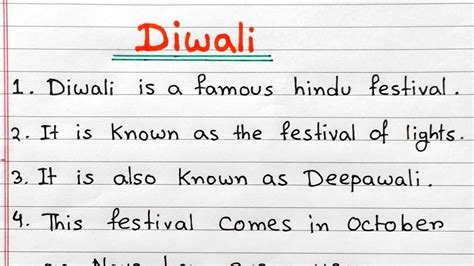 Diwali
1. Diwali is a famous hindu festival.
2. It is known as the festival of lights.
3. It is also known as Deepawali.
4. This festival comes in October